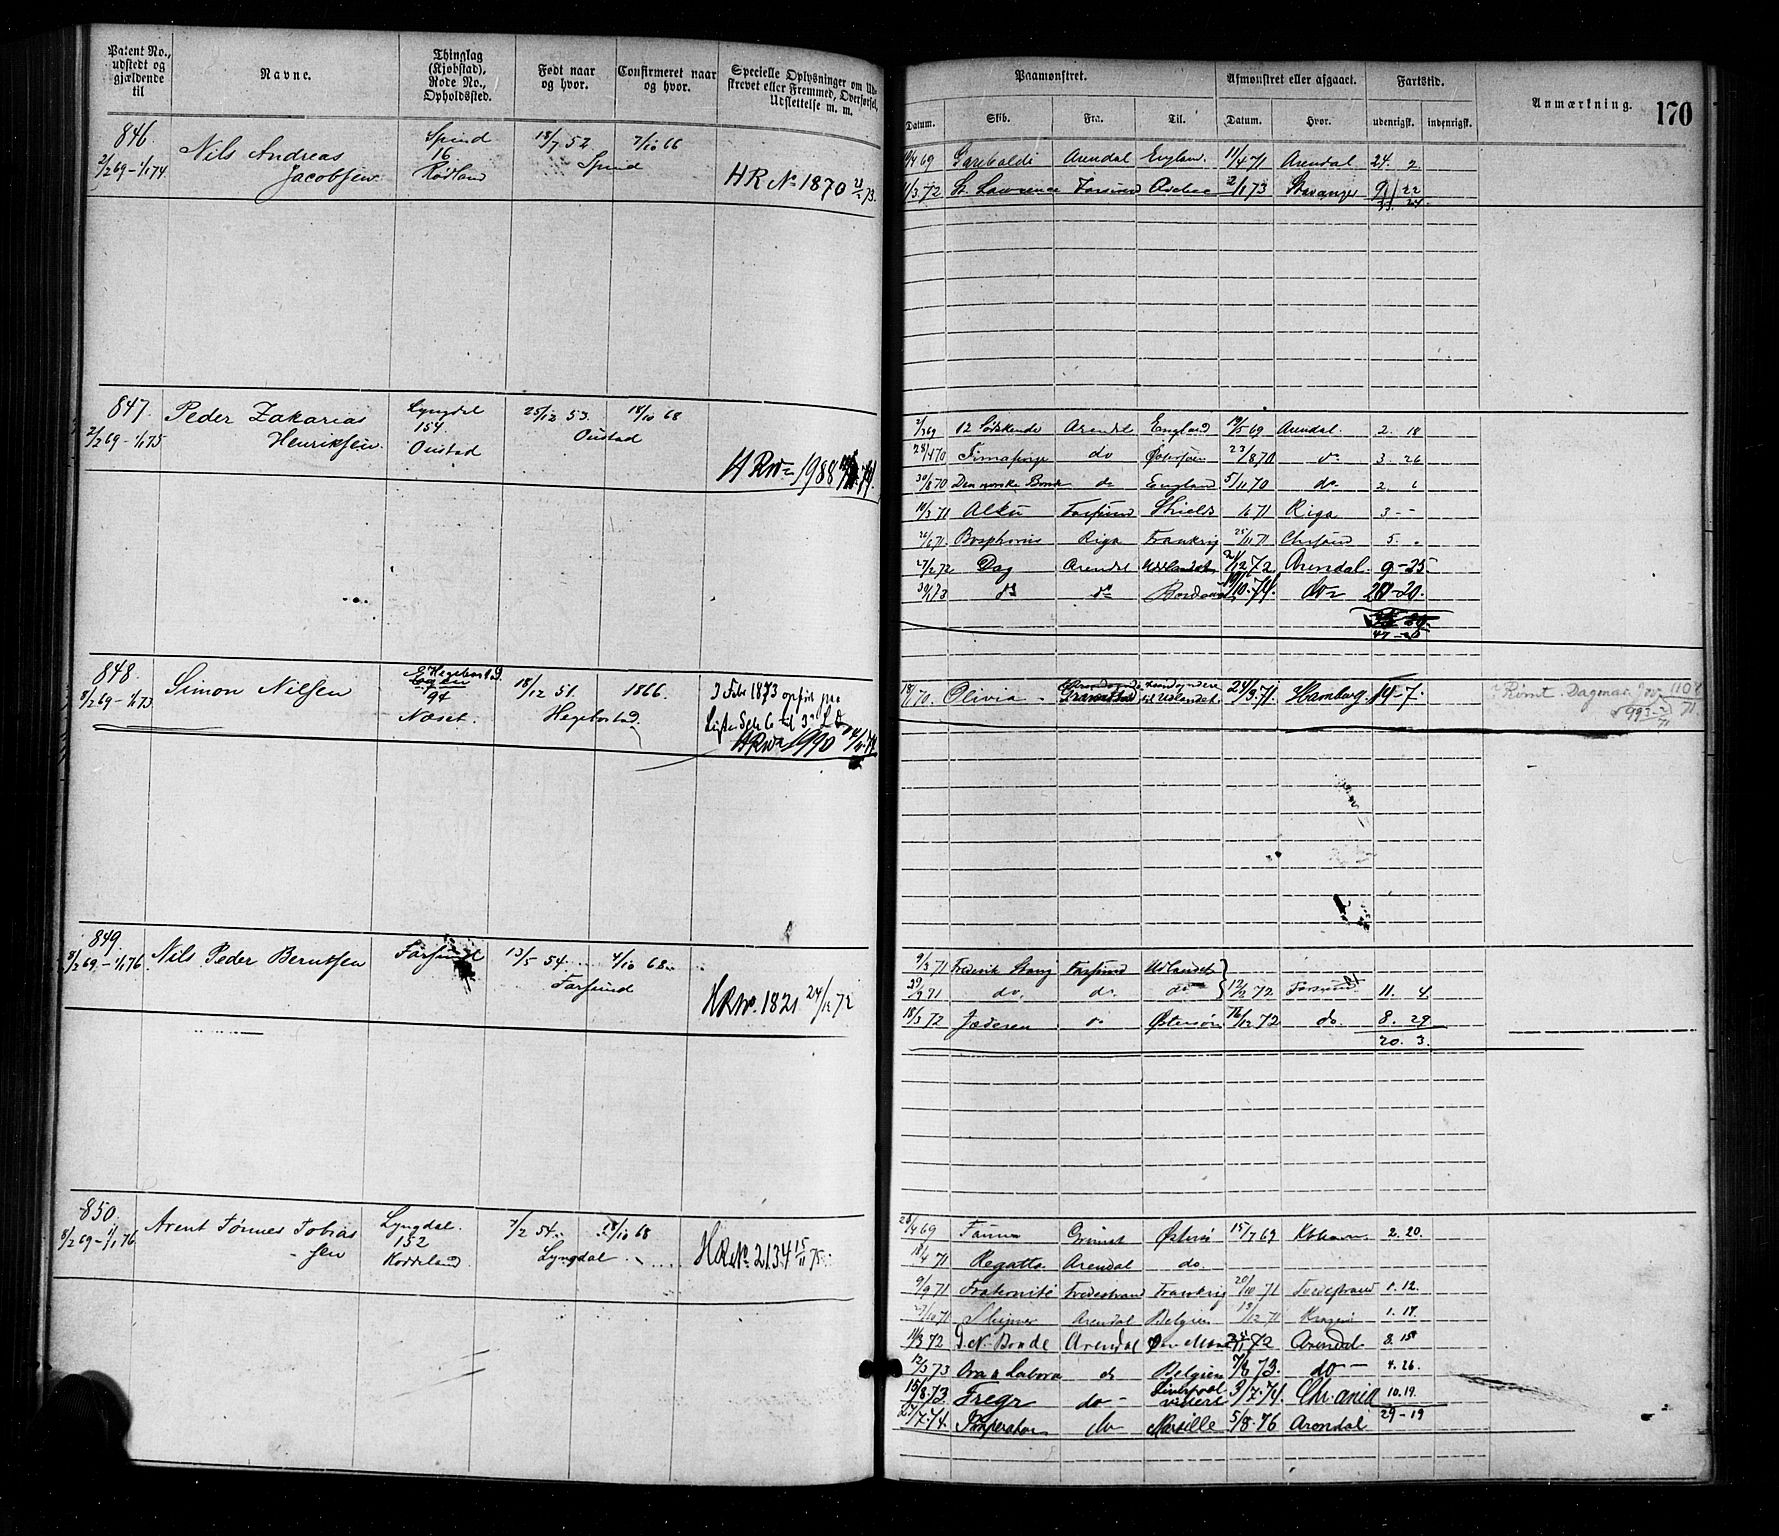 Patent No., udstedt og gjældende til
Navne.
Thinglag (Kjøbstad), Rode No., Opholdssted.
Født naar og hvor.
Confirmeret naar og hvor.
Specielle Oplysninger om Udskrevet eller Fremmed, Overførsel, Udslettelse m. m.
Paamønstret.
Datum. Skib. Fra. Til.
Afmønstret eller afgaaet.
Datum. Hvor.
Fartstid.
udenrigsk. indenrigsk.
Anmærkning.
170
846. Spind 18/7 52 7/10 66
2/2 69 - 1/1 74 Nils Andreas 16 Spind
Jacobsen Rødland HR No 1870
4 69 Garibaldi Arendal England. 11/4 71 Arendal 24. 2
1/3 72 St. Lawrence Farsund 2/1 73 Stavanger 9 22
847. Peder Zakarias Lyngdal 25/12 53. 18/10 68
2/2 69 - 1/1 75 Henriksen. 154. Oustad
Oustad
HR No 1988
2/3 69 12 Södskende Arendl England 19/5 69 Arendal. 2. 18
28/4 70 do Østersøen 23/8 70 do 3. 26
30/8 70 Den norske Bonde do England 5/11 70 do. 2. 6
11/3 71 Farsund Shields 6 71 Riga 3 - -
26/6 71 Bosphorus Riga Frankrig 25/11 71 5. -
27/2 72 Dag Arendl Udlandet 12 72 Arendal. 9 - 25
30/1 73 do do 10. 74. do 20 - 20.
47 - 20
848. Simon Nilsen Hegebostad 18/12 51. 1866.
8/2 69 - 1/1 73 94 Hegebostad.
Næset.
3 Febr 1873 opført paa
HR No 1990
70. Olivia - Udlandet 24/9 71. Hamburg. 19 - 7.
Rømt. Dagmar
849.
8/2 69 - 1/1 76. Nils Peder Berntsen Farsund 13/5 54. 4/10 68.
Farsund
HR No. 1821 24/12 72
9/3 71 Frederik Stang Farsund Udlandet
71 do. do. do 12/2 72 Farsund 11. 4.
18/3 72 Jæderen do Østersøen 16/12 72 do. 8. 29
20. 3.
850.
8/2 69 - 1/1 76 Arent Tønnes Tobias- Lyngdal. 7/2 54. 18/10 68
sen 152 Lyngdal
Koddeland
HR No. 2134 15/11 75
28/4 69 Fauna Grimst Østersø 15/7 69 Kbhavn 2. 20.
18/4 71 Regatta Arendal do.
9/9 71 Fraternité Tvedestrand Frankrig 20/10 71 Tvedestrand 1. 12.
27/10 71 Arendal Belgien 13/12 71 Kragerø 1. 17.
11/3 72 D. N. Bonde Arendal 72 Arendal 8. 15
12/3 73 Ora & Labora do Belgien 7/8 73. do - 4. 26.
15/8. 73 Fregr do - Liverpool videre 3/7. 74. Chr.ania 10. 19.
27/7. 74. Imperator do Marseille 5/8. 76 Arendal 29 - 19